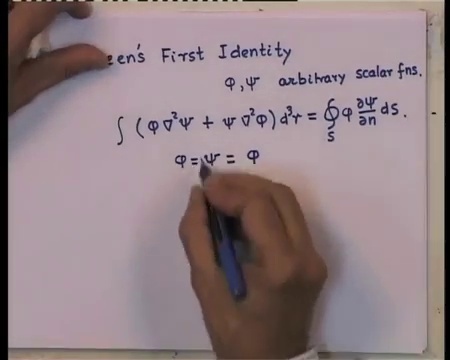 een's First Identity
φ, ψ arbitrary scalar fns.
∫ (φ ∇²ψ + ψ ∇²φ) d³r = ∮_S φ ∂ψ/∂n dS.
φ = ψ = φ